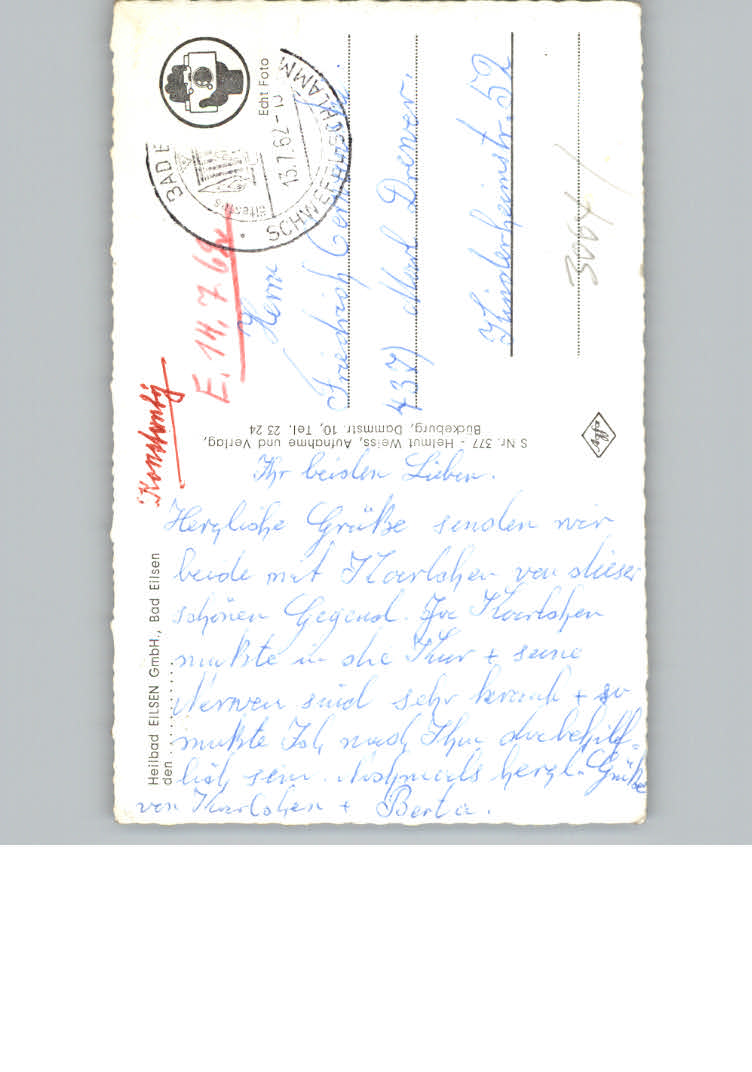 Heilbad EILSEN GmbH., Bad Eilsen
den
Ihr beiden Lieben.
Herzliche Grüße senden wir
beide mit Karlchen von dieser
schönen Gegend. Da Karlchen
mußte in die Kur + seine
Nerven sind sehr krank + so
mußte Ich nach Ihm dabehilf-
lich sein. Nochmals herzl. Grüße
von Karlchen + Berta.
S Nr. 377 - Helmut Weiss, Aufnahme und Verlag,
Bückeburg, Dammstr. 10, Tel. 23 24
E. 14. 7. 62
Echt Foto
BAD E
13.7.62
SCHWEFELSCHLAMM
Herrn
Friedrich
437) Marl Drewer.
Kinderheimstr. 52
3064/